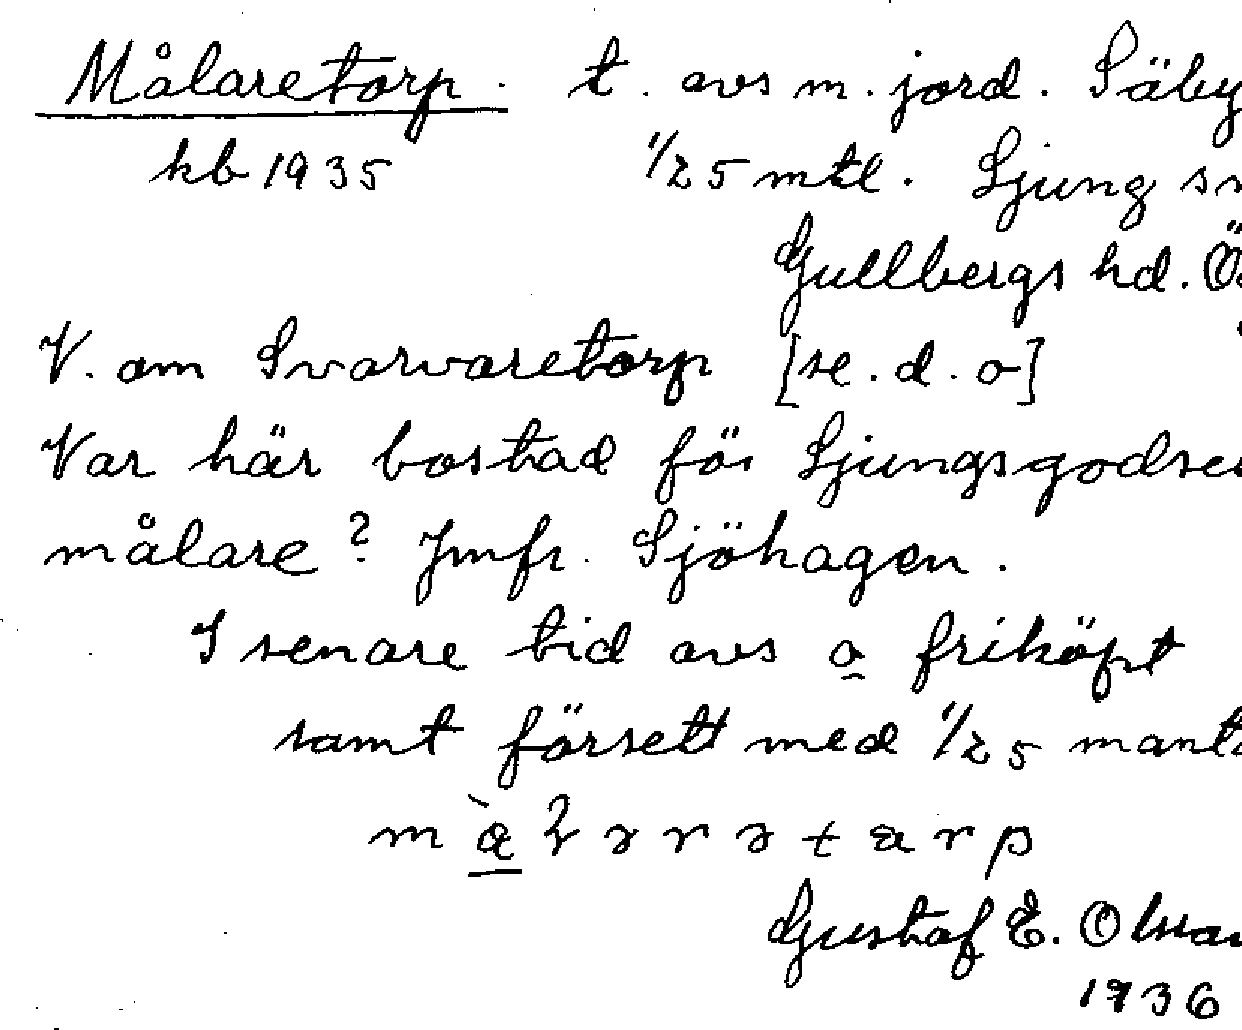 Målaretorp. t. avs m. jord. Säby
kb 1935 1/25 mtl. Ljung sn
Gullbergs hd. Ö
V. om Svarvaretorp [se. d. o]
Var här bostad för Ljungsgodsen
målare? Jmfr. Sjöhagen.
I senare tid avs o friköpt
samt försett med 1/25 mant
Gustaf E. Olsson
1936